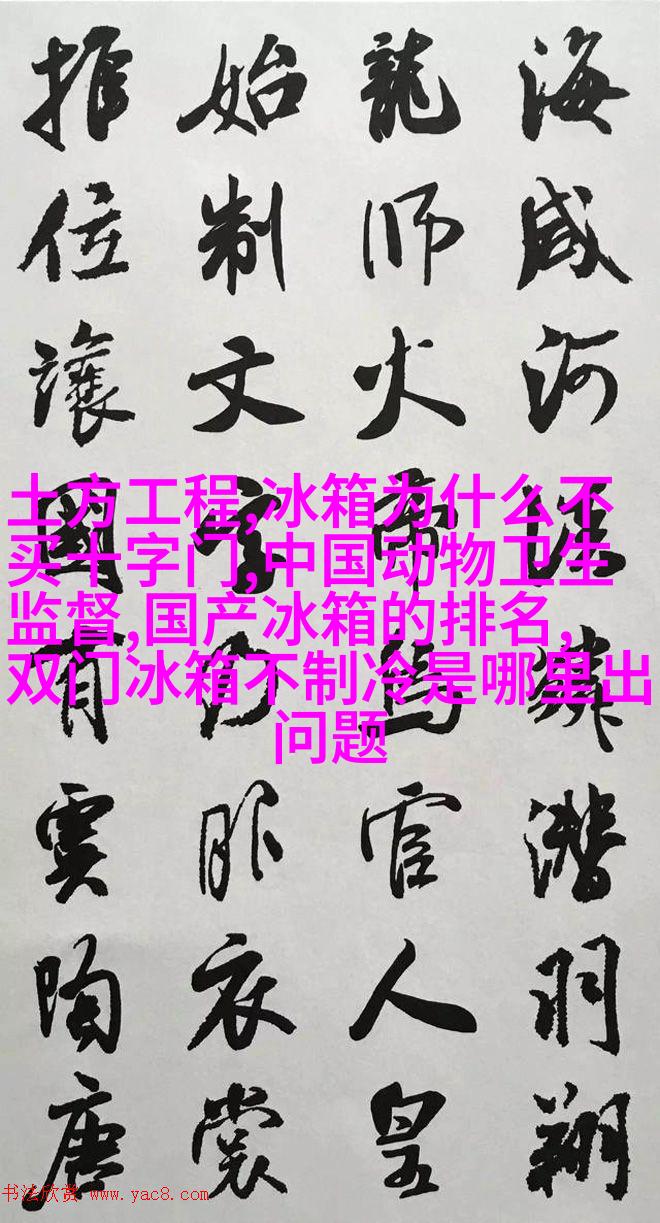 海咸河淡鱗潛羽翔
龍师火帝鳥官人皇
始制文字乃服衣裳
推位讓國有虞陶唐
土方工程,冰箱为什么不
买十字门,中国动物卫生
监督,国产冰箱的排名,
双门冰箱不制冷是哪里出
问题
书法欣赏 www.yac8.com